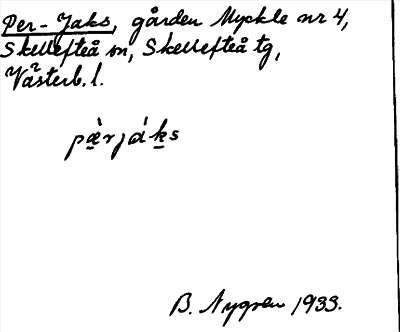 Per-Jaks, gården Myckle nr 4,
Skellefteå sn, Skellefteå tg,
Västerb. l.
pæ̀rjáks
B. Nygren 1933.